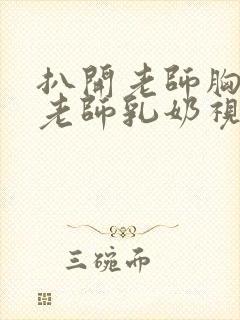 扒開老師胸
老師乳奶視
三碗而